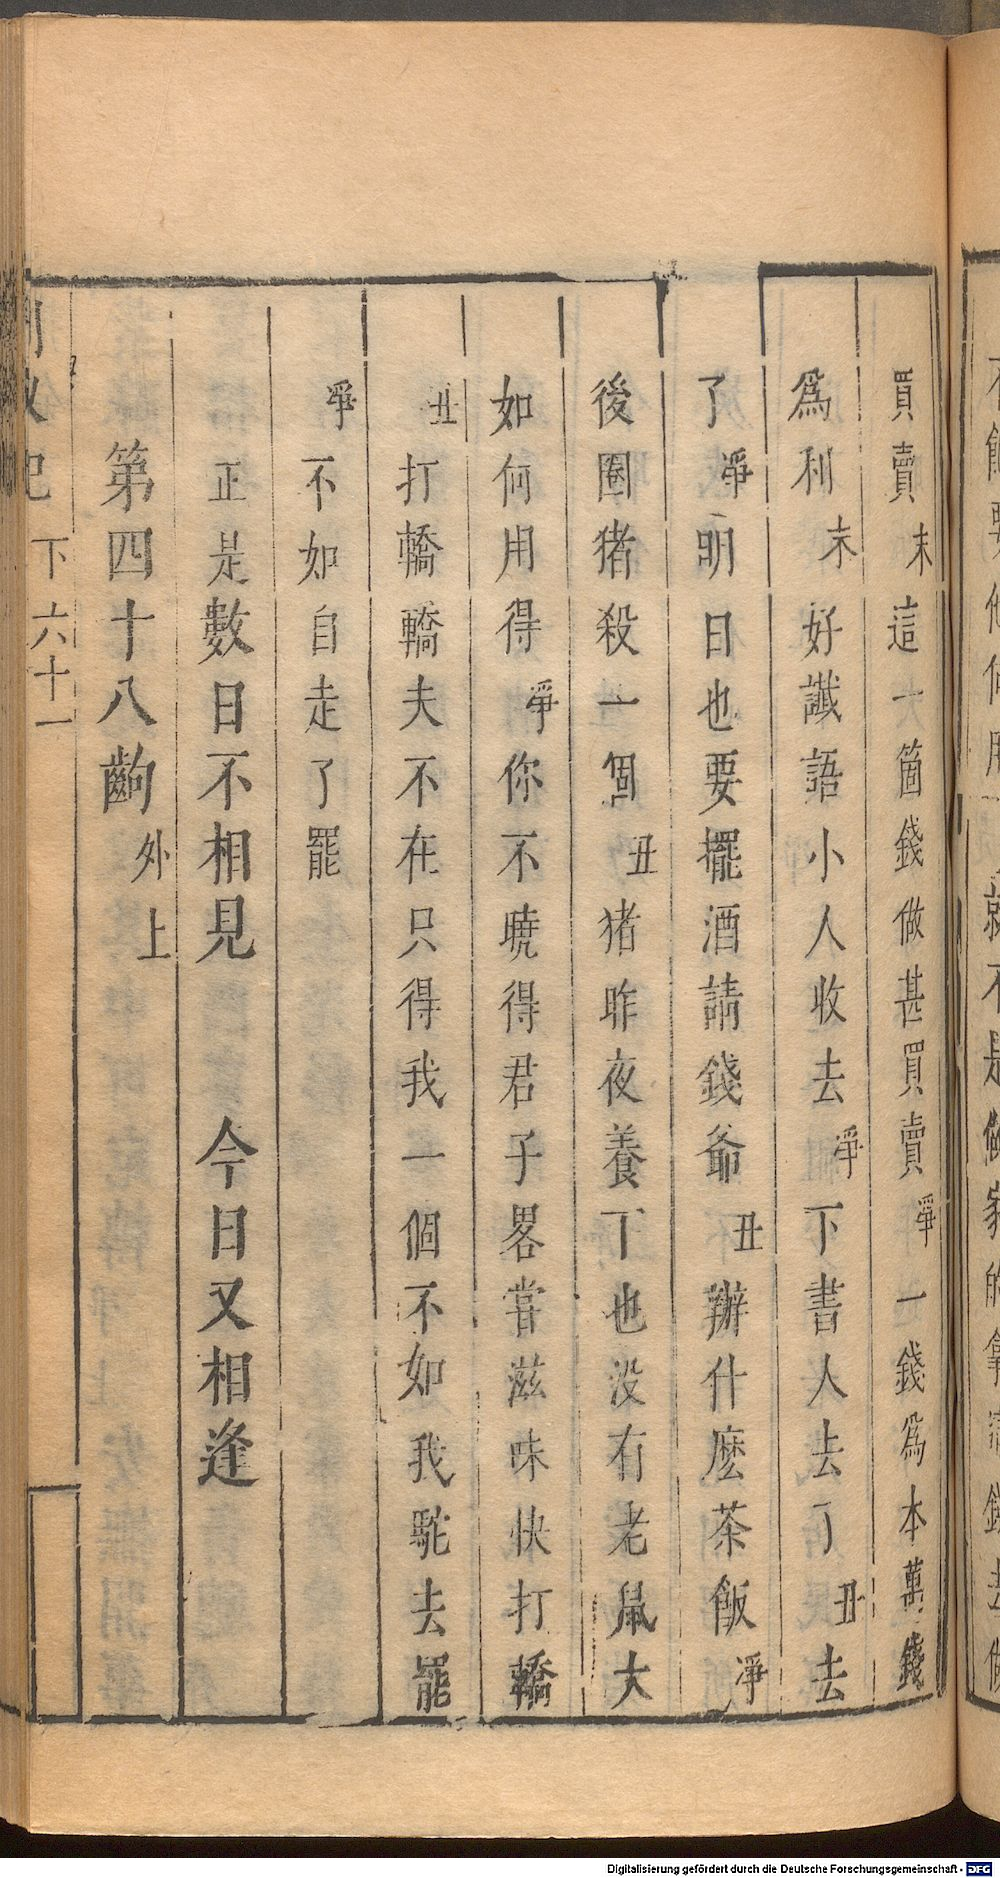 買賣末這一箇錢做甚買賣淨一錢爲本萬錢
爲利末好讖語小人收去淨下書人去了丑去
了淨明日也要擺酒請錢爺丑辦什麽茶飯淨
後圈猪殺一個丑猪昨夜養了也没有老鼠大
如何用得淨你不曉得君子畧嘗滋味快打轎
丑打轎轎夫不在只得我一個不如我駝去罷
淨不如自走了罷
正是數日不相見 今日又相逢
第四十八齣外上
下 六十一
Digitalisierung gefördert durch die Deutsche Forschungsgemeinschaft - DFG